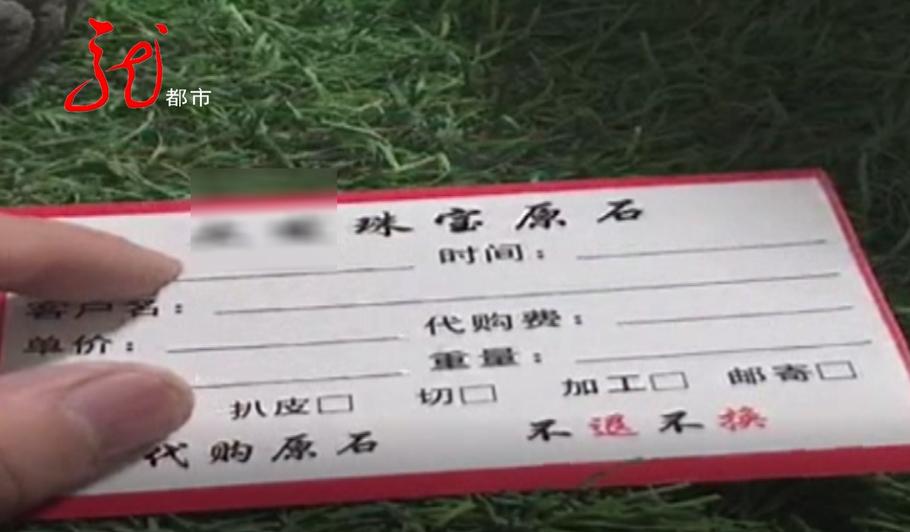 都市
珠宝原石
时间：
客户名：
单价： 代购费：
重量：
扒皮□ 切□ 加工□ 邮寄□
代购原石 不退不换